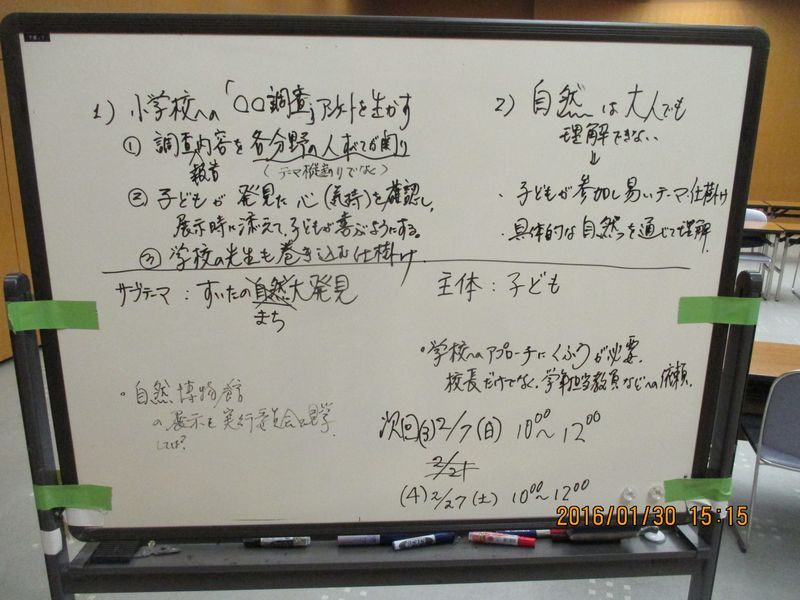 1) 小学校への「○○調査」アンケートを生かす
① 調査内容を各分野の人すべてが関り
報告
(テーマ縦割りでなく)
② 子どもが発見した心(気持)を確認し、
展示時に添えて、子どもが喜ぶようにする。
③ 学校の先生も巻き込む仕掛け
2) 自然は大人でも
理解できない
⇓
・子どもが参加し易いテーマ・仕掛け
・具体的な自然を通じて理解
サブテーマ：すいたの自然大発見
まち
主体：子ども
・学校へのアプローチにくふうが必要.
校長だけでなく、学年担当教員などへの依頼.
・自然博物館
の展示を実行委員会で見学
しては?
次回(3)2/7(日) 10:00~12:00
(4)2/27(土) 10:00~12:00
2016/01/30 15:15